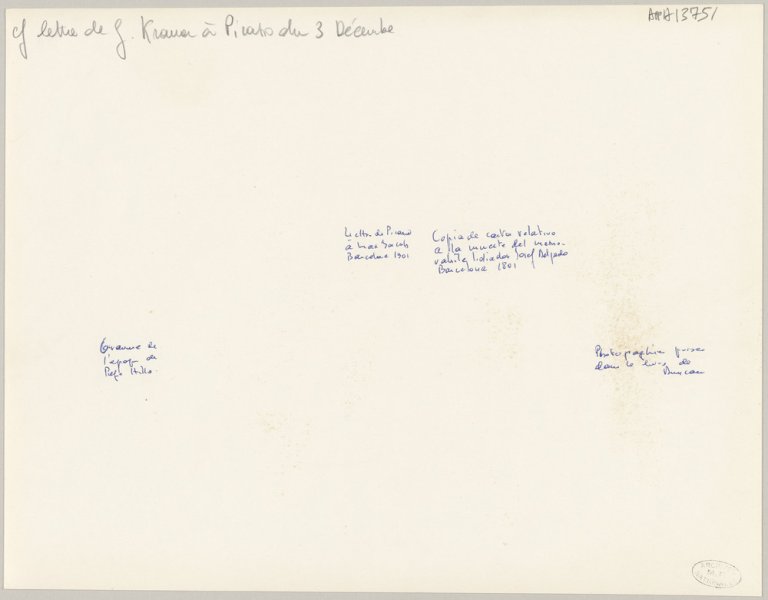 cf lettre de G. Kramer à Picasso du 3 Décembre
APPH13751
Lettre de Picasso
à Max Jacob
Barcelone 1901
Copia de carta relativo
a la muerte del memo-
rable lidiador Josef Delgado
Barcelona 1801
Gravure de
l'époque de
Pepe Hillo.
Photographie prise
dans le livre de
Duncan
ARCHIVES